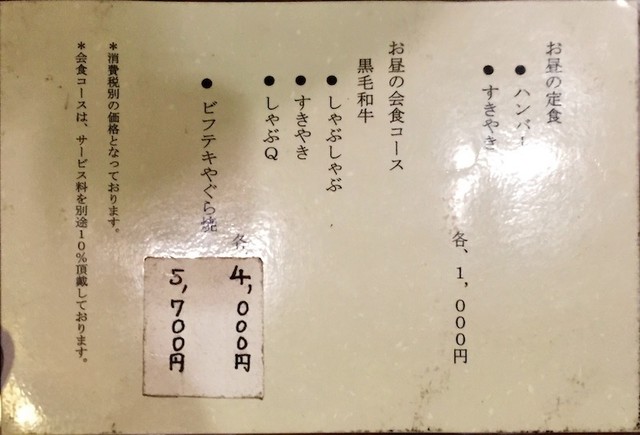 お昼の定食
●ハンバー
●すきやき
各、1,000円
お昼の会食コース
黒毛和牛
●しゃぶしゃぶ
●すきやき
●しゃぶQ
各、4,000円
●ビフテキやぐら焼 5,700円
*消費税別の価格となっております。
*会食コースは、サービス料を別途10%頂戴しております。